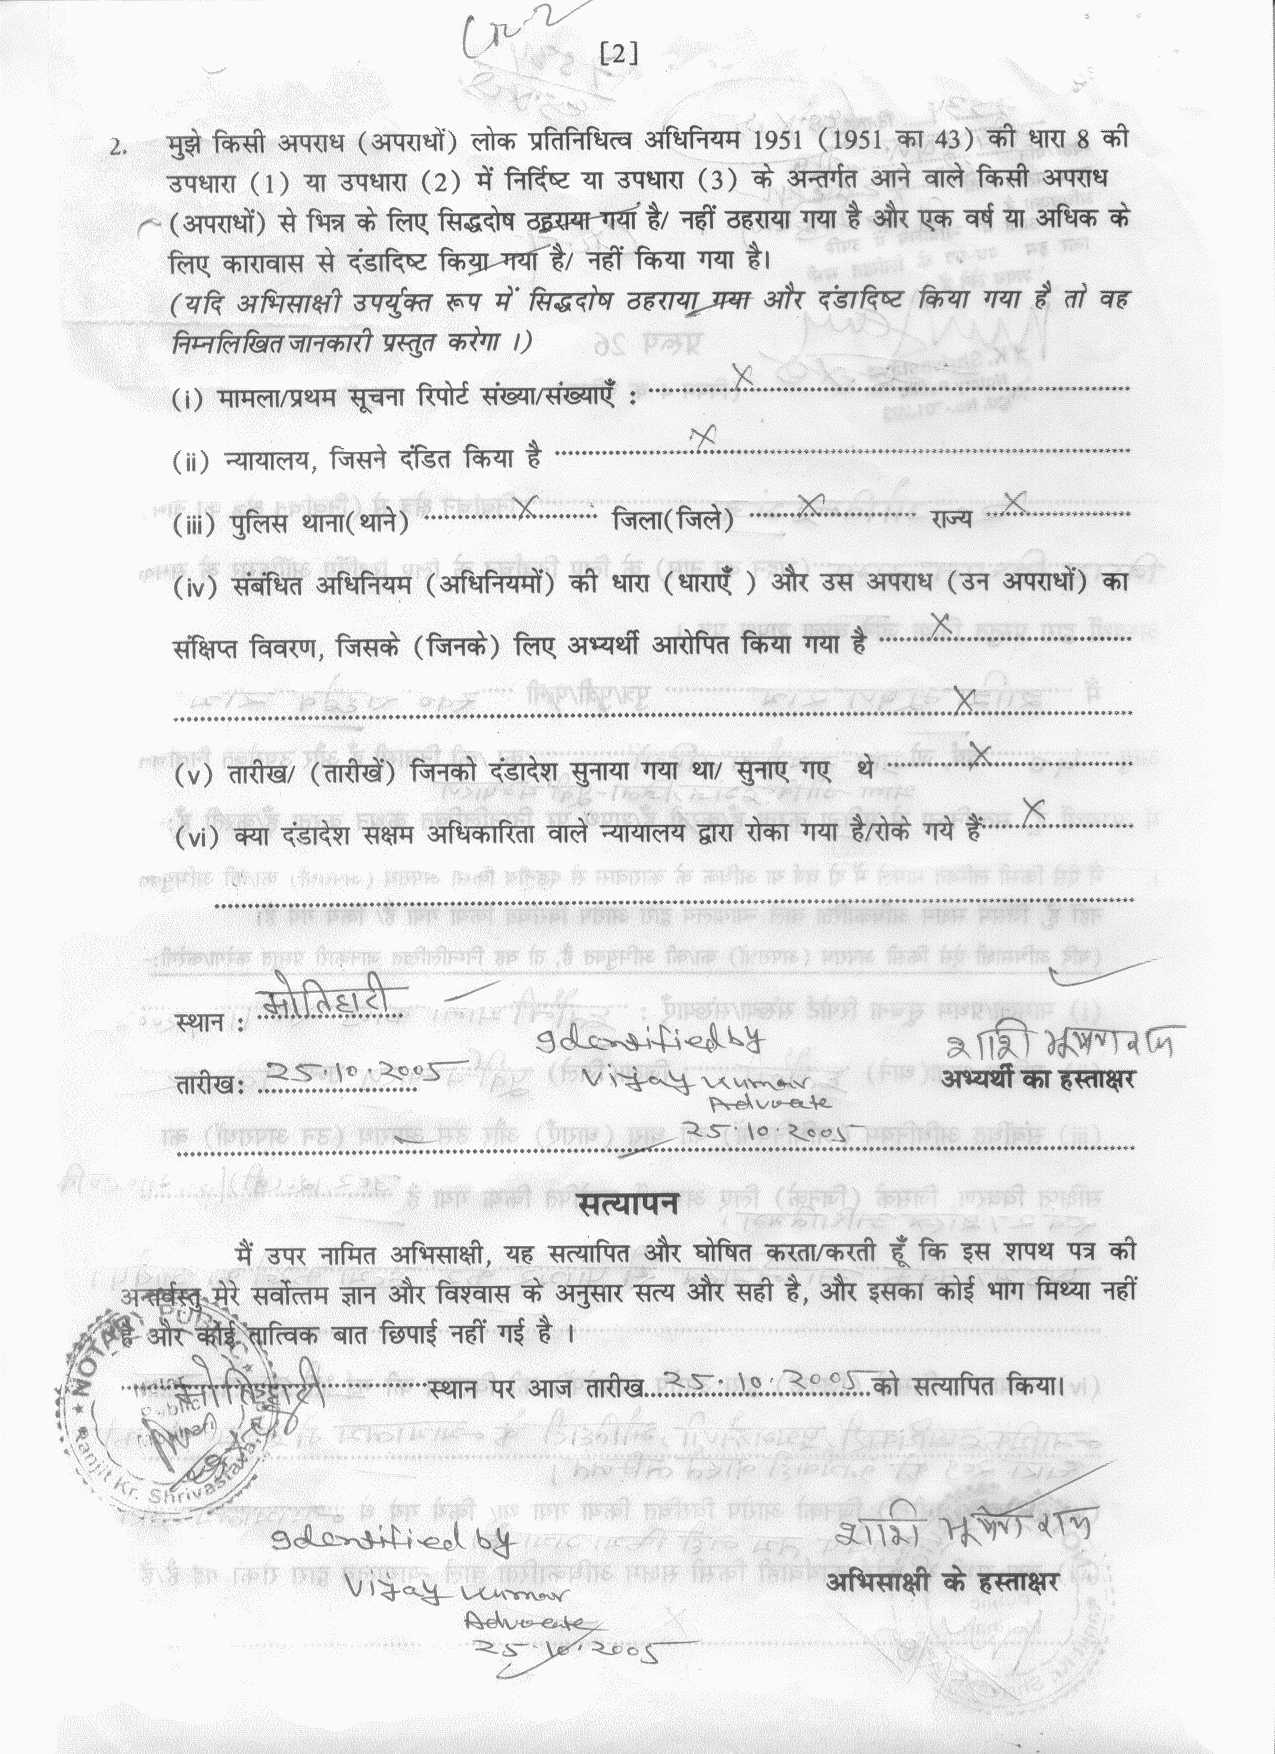 [2]
2. मुझे किसी अपराध (अपराधों) लोक प्रतिनिधित्व अधिनियम 1951 (1951 का 43) की धारा 8 की
उपधारा (1) या उपधारा (2) में निर्दिष्ट या उपधारा (3) के अन्तर्गत आने वाले किसी अपराध
(अपराधों) से भिन्न के लिए सिद्धदोष ठहराया गया है/ नहीं ठहराया गया है और एक वर्ष या अधिक के
लिए कारावास से दंडादिष्ट किया गया है/ नहीं किया गया है।
(यदि अभिसाक्षी उपर्युक्त रूप में सिद्धदोष ठहराया गया और दंडादिष्ट किया गया है तो वह
निम्नलिखित जानकारी प्रस्तुत करेगा ।)
(i) मामला/प्रथम सूचना रिपोर्ट संख्या/संख्याएँ : X
(ii) न्यायालय, जिसने दंडित किया है X
(iii) पुलिस थाना(थाने) X जिला(जिले) X राज्य X
(iv) संबंधित अधिनियम (अधिनियमों) की धारा (धाराएँ ) और उस अपराध (उन अपराधों) का
संक्षिप्त विवरण, जिसके (जिनके) लिए अभ्यर्थी आरोपित किया गया है X
X
(v) तारीख/ (तारीखें) जिनको दंडादेश सुनाया गया था/ सुनाए गए थे X
(vi) क्या दंडादेश सक्षम अधिकारिता वाले न्यायालय द्वारा रोका गया है/रोके गये हैं X
स्थान : मोतिहारी
Identified by
शशि भूषण राय
तारीख: 25.10.2005
Vijay Kumar
अभ्यर्थी का हस्ताक्षर
Advocate
25.10.2005
सत्यापन
मैं उपर नामित अभिसाक्षी, यह सत्यापित और घोषित करता/करती हूँ कि इस शपथ पत्र की
अन्तर्वस्तु मेरे सर्वोत्तम ज्ञान और विश्वास के अनुसार सत्य और सही है, और इसका कोई भाग मिथ्या नहीं
है और कोई तात्विक बात छिपाई नहीं गई है ।
मोतिहारी स्थान पर आज तारीख 25.10.2005 को सत्यापित किया।
NOTARY PUBLIC
Ranjit Kr. Shrivastava
Identified by
शशि भूषण राय
Vijay Kumar
अभिसाक्षी के हस्ताक्षर
Advocate
25.10.2005